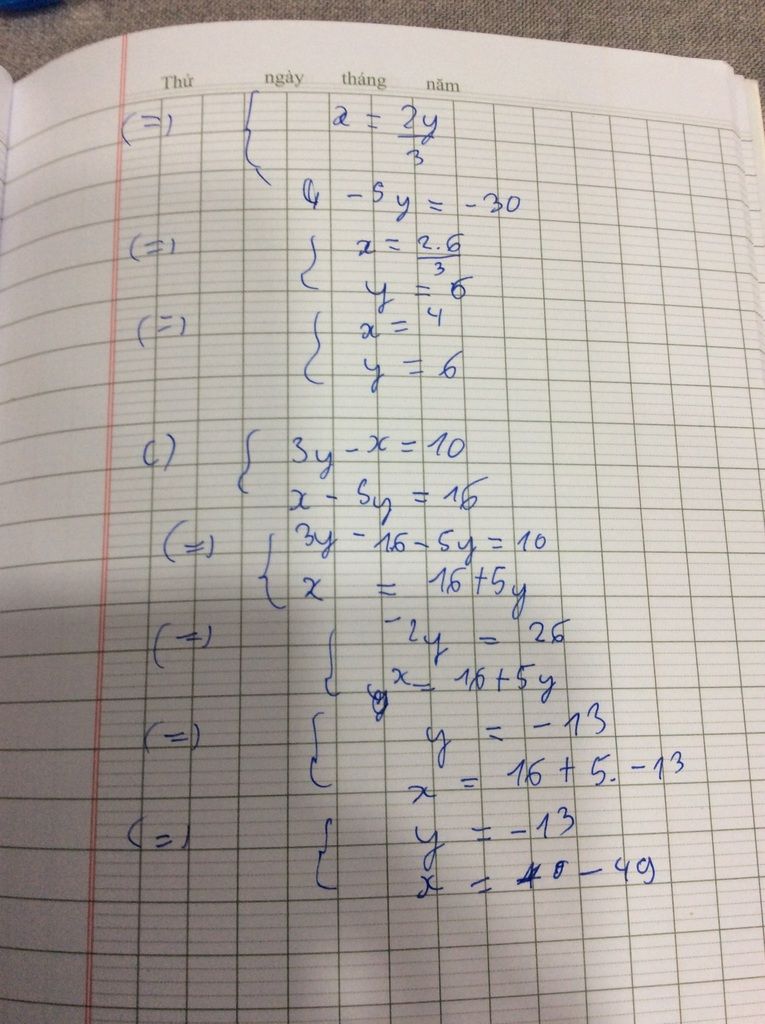 Thứ ngày tháng năm
(=) { x = 2y/3
4 - 5y = -30
(=) { x = 2.6/3
y = 6
(=) { x = 4
y = 6
c) { 3y - x = 10
x - 5y = 16
(=) { 3y - 16 - 5y = 10
x = 16 + 5y
(=) { -2y = 26
x = 16 + 5y
(=) { y = -13
x = 16 + 5. -13
(=) { y = -13
x = - 49